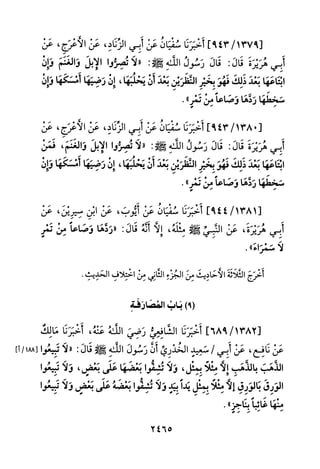 [٩٤٣/١٣٧٩] أَخْبَرَنَا سُفْيَانُ عَنْ أَبِي الزِّنَادِ، عَنْ الأَعْرَجِ، عَنْ
أَبِي هُرَيْرَةَ قَالَ: قَالَ رَسُولُ اللَّهِ ﷺ: «لَا تُصِرُّوا الإِبِلَ وَالْغَنَمَ وَإِنْ
ابْتَاعَهَا بَعْدَ ذَلِكَ فَهُوَ بِخَيْرِ النَّظَرَيْنِ بَعْدَ أَنْ يَحْلُبَهَا، إِنْ رَضِيَهَا أَمْسَكَهَا وَإِنْ
سَخِطَهَا رَدَّهَا وَصَاعاً مِنْ تَمْرٍ».
[٩٤٣/١٣٨٠] أَخْبَرَنَا سُفْيَانُ عَنْ أَبِي الزِّنَادِ، عَنْ الأَعْرَجِ، عَنْ
أَبِي هُرَيْرَةَ قَالَ: قَالَ رَسُولُ اللَّهِ ﷺ: «لَا تُصِرُّوا الإِبِلَ وَالْغَنَمَ، فَمَنْ
ابْتَاعَهَا بَعْدَ ذَلِكَ فَهُوَ بِخَيْرِ النَّظَرَيْنِ بَعْدَ أَنْ يَحْلُبَهَا، إِنْ رَضِيَهَا أَمْسَكَهَا وَإِنْ
سَخِطَهَا رَدَّهَا وَصَاعاً مِنْ تَمْرٍ».
[٩٤٤/١٣٨١] أَخْبَرَنَا سُفْيَانُ عَنْ أَيُّوبَ، عَنْ ابْنِ سِيرِيْنَ، عَنْ
أَبِي هُرَيْرَةَ، عَنْ النَّبِيِّ ﷺ مِثْلَهُ، إِلاَّ أَنَّهُ قَالَ: «رَدَّهَا وَصَاعاً مِنْ تَمْرٍ
لَا سَمْرَاءَ».
أَخْرَجَ الثَّلَاثَةَ الأَحَادِيثَ مِنَ الْجُزْءِ الثَّانِي مِنْ اخْتِلَافِ الْحَدِيثِ.
(٩) بَابُ الْمُصَارَفَةِ
[٦٨٩/١٣٨٢] أَخْبَرَنَا الشَّافِعِيُّ رَضِيَ اللَّهُ عَنْهُ، أَخْبَرَنَا مَالِكٌ
عَنْ نَافِعٍ، عَنْ أَبِي / سَعِيدٍ الْخُدْرِيِّ أَنَّ رَسُولَ اللَّهِ ﷺ قَالَ: «لَا تَبِيعُوا [١٨٨/أ]
الذَّهَبَ بِالذَّهَبِ إِلاَّ مِثْلاً بِمِثْلٍ، وَلَا تُشِفُّوا بَعْضَهَا عَلَى بَعْضٍ، وَلَا تَبِيعُوا
الوَرِقَ بِالوَرِقِ إِلاَّ مِثْلاً بِمِثْلٍ يَداً بِيَدٍ وَلَا تُشِفُّوا بَعْضَهُ عَلَى بَعْضٍ وَلَا تَبِيعُوا
مِنْهَا غَائِباً بِنَاجِزٍ».
٢٤٦٥